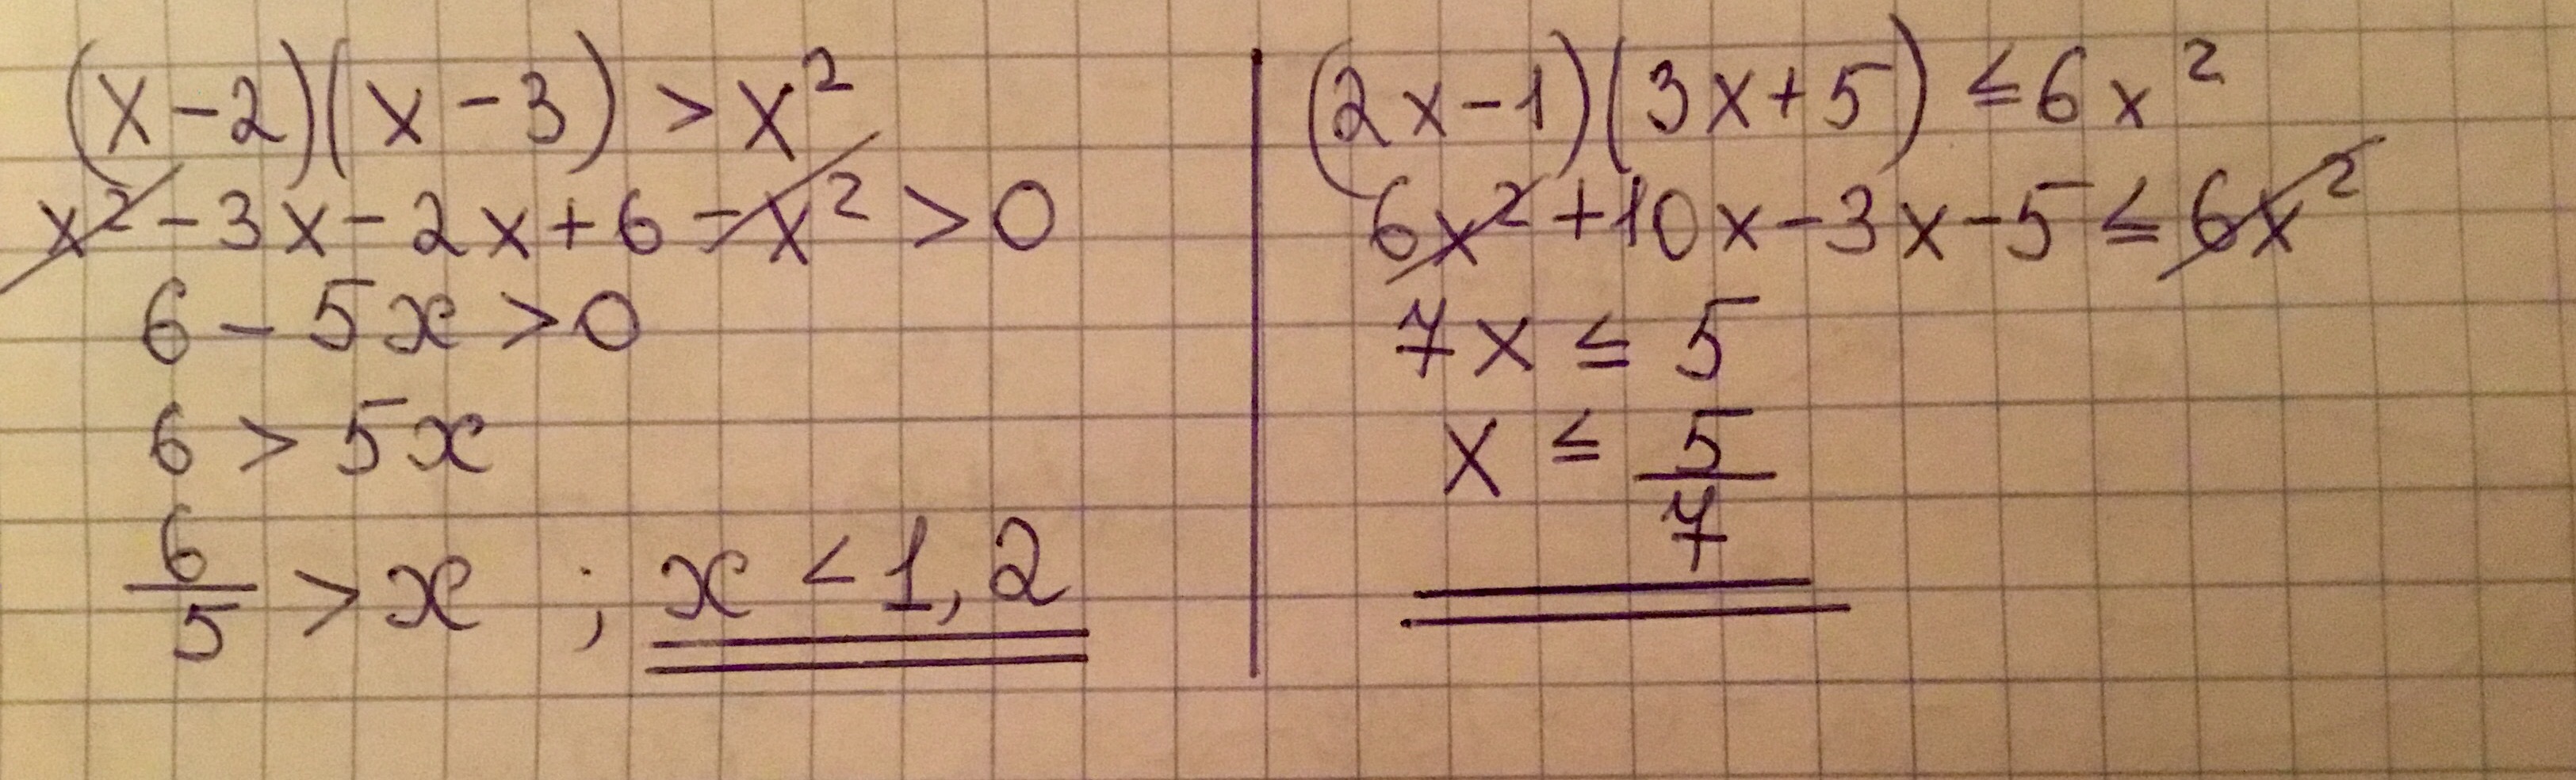 (x-2)(x-3) > x²
x² - 3x - 2x + 6 - x² > 0
6 - 5x > 0
6 > 5x
6/5 > x ; x < 1,2
(2x-1)(3x+5) ≤ 6x²
6x² + 10x - 3x - 5 ≤ 6x²
7x ≤ 5
x ≤ 5/7